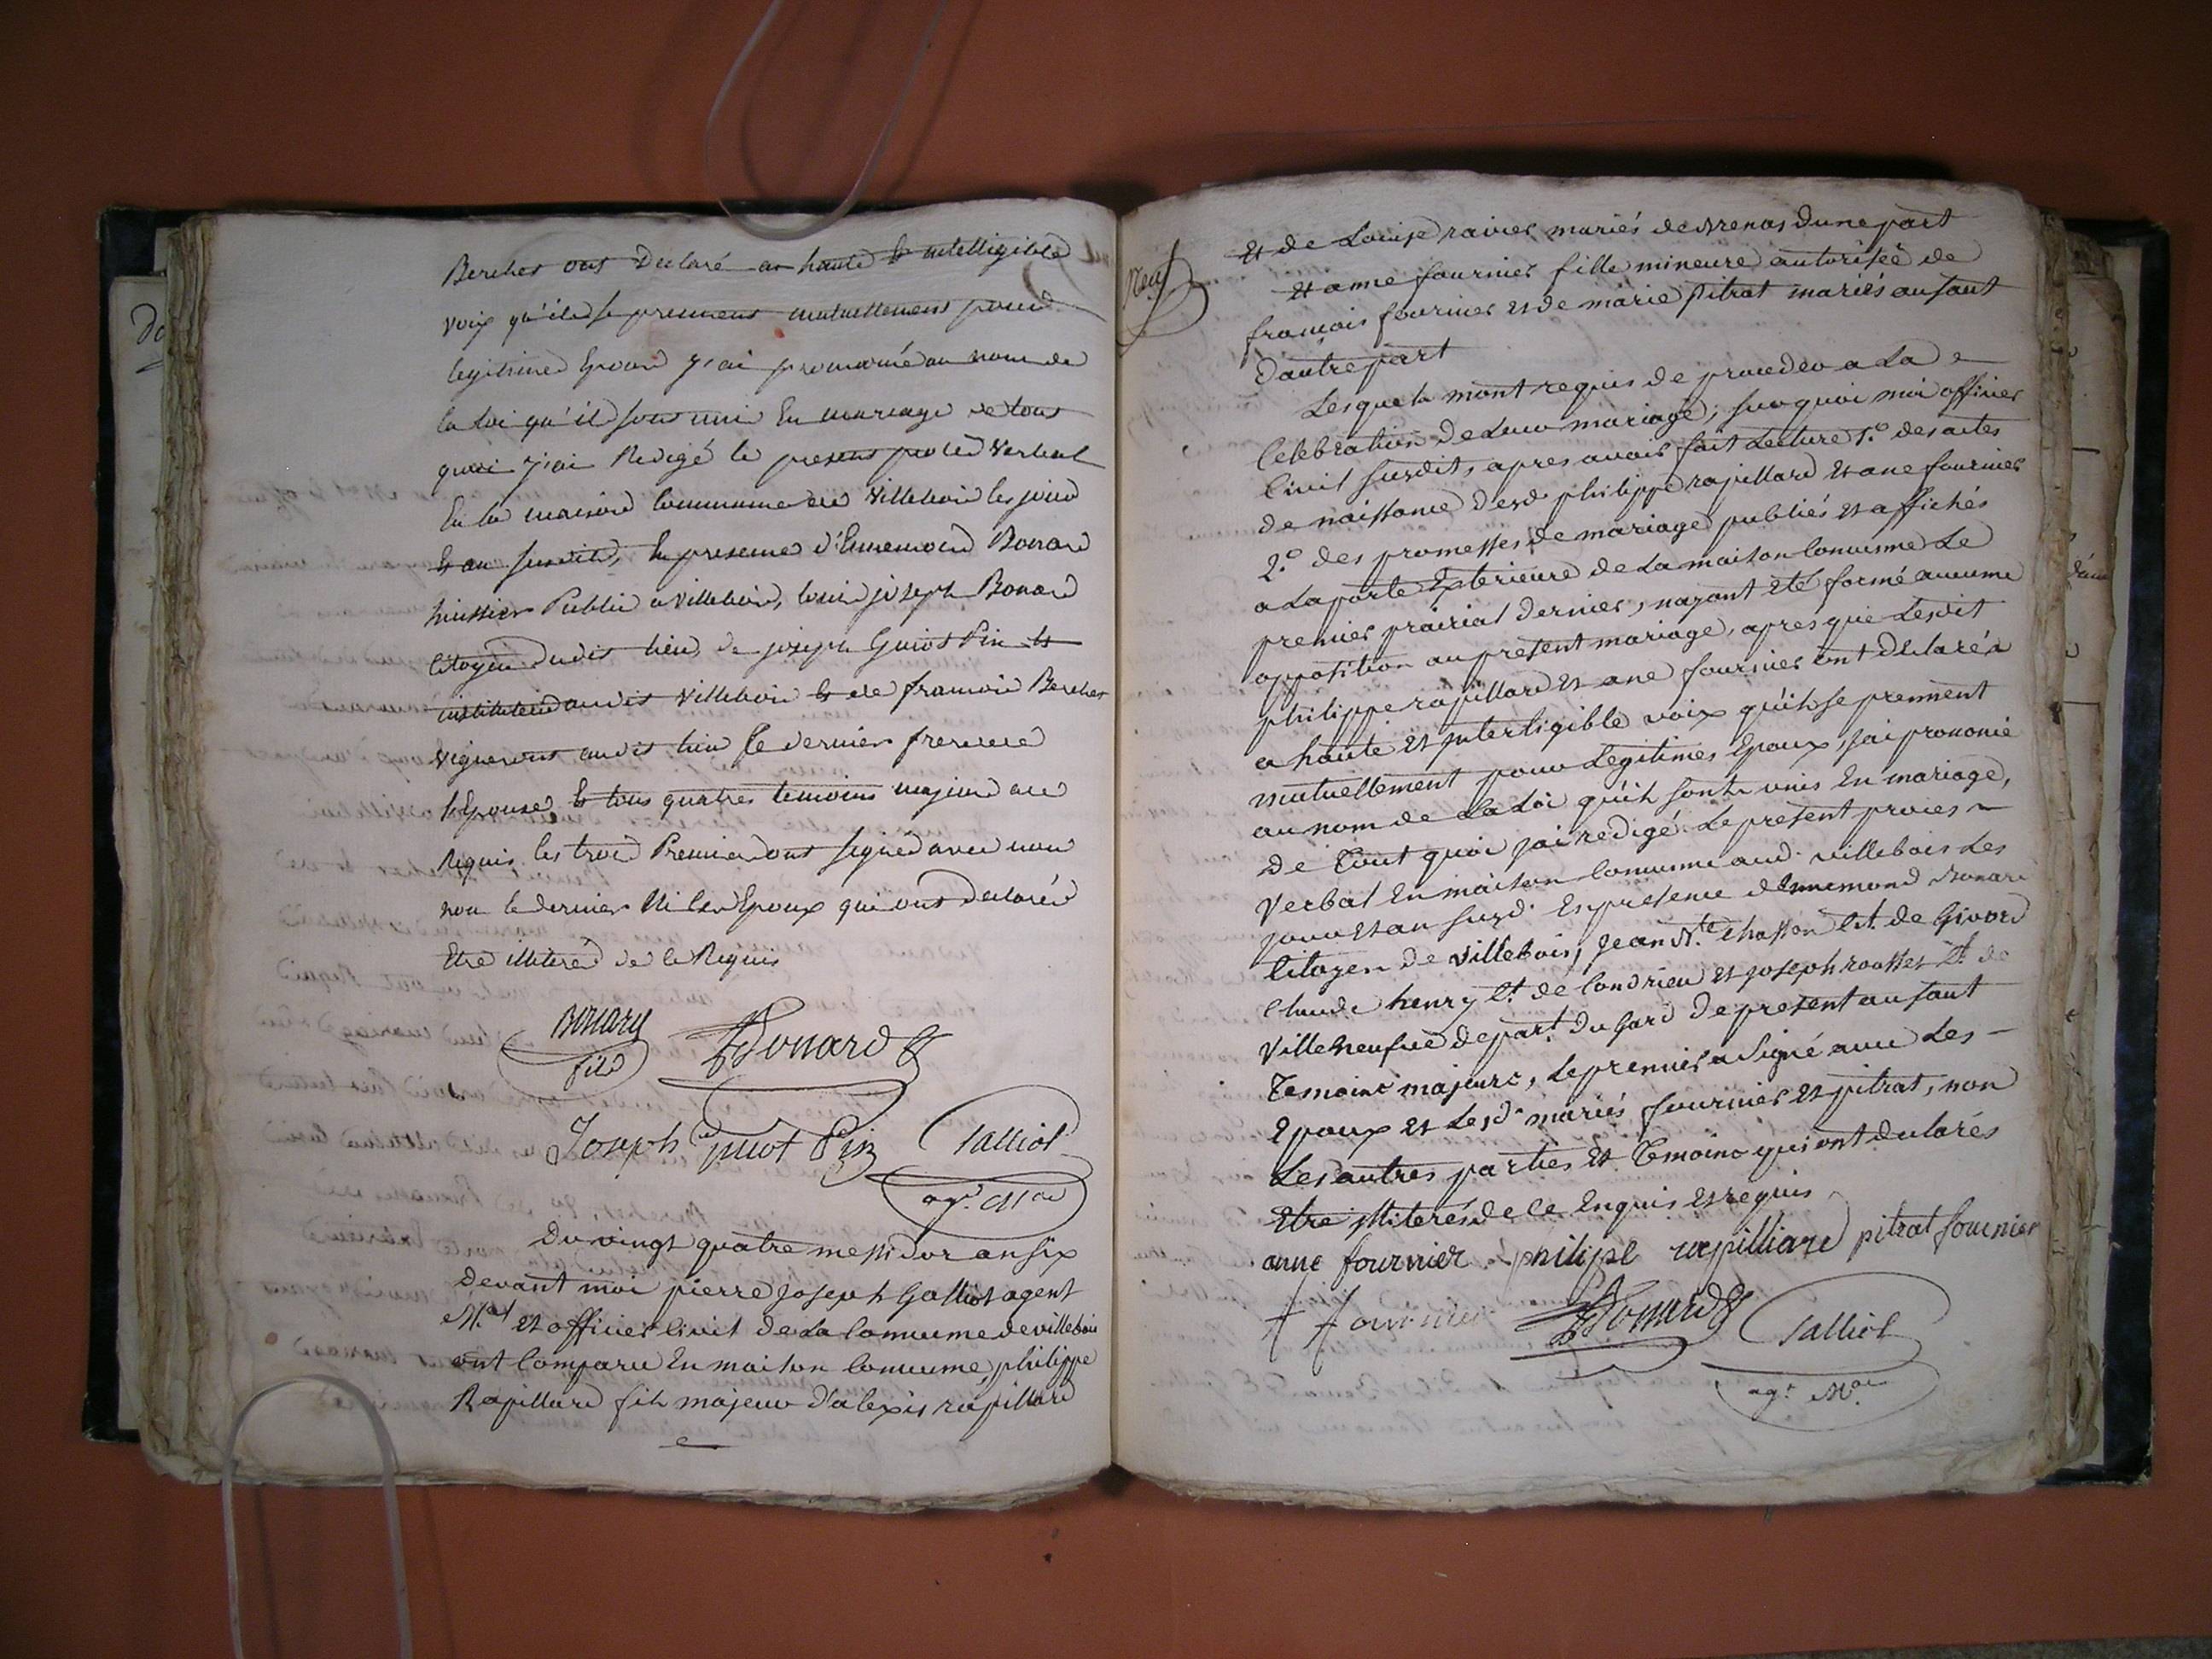 Berches ont declaré a haute & intelligible
voix qu'ils se prennent mutuellement pour
legitime Epoux j'ai prononcé au nom de
la loi qu'il sont uni En mariage de tout
quoi j'ai Redigé le present procès Verbal
En la maison Commune de Villebois les jour
& an susdit, En presence d'Ennemond Bonard
huissier Public a villebois, louis joseph Bonard
Citoyen dudit lieu, de joseph Guiot Pin &
instituteur audit Villebois & de francois Bercher
vigneron audit lieu Ce dernier frere de
l'Epouse, & tous quatres temoins majeurs de ce
Requis les trois Premier ont signé avec nous
non le dernier Ni les Epoux qui ont declaré
Etre illiteré de ce Requis
Bonard
fils
Bonard
Joseph guiot Pin
Galliot
agt. Mal
Du vingt quatre messidor an six
Devant moi pierre joseph Galliot agent
Mal et officier Civil de La Commune de villebois
ont Comparu En maison Commune, philippe
Rapillard fils majeur d'alexis rapillard
Neuf
et de Louise ravier mariés de Brenas dune part
et anne fournier fille mineure autorisée de
francois fournier et de marie pitrat mariés au Saut
Dautre part
Lesquels mont requis de proceder a La
Celebration de Leur mariage; Sur quoi moi officier
Civil Susdit, apres avoir fait Lecture 1.º des actes
de naissance desd. philippe rapillard et ane fournier
2.º des promesses de mariage publiés et affichés
a La porte Exterieure de La maison Commune Le
premier prairial dernier, nayant eté formé aucune
opposition au present mariage, apres que Lesdit
philippe rapillard et ane fournier ont declaré a
a haute et Interligible voix qu'ils se prennent
mutuellement pour Legitimes Epoux, jai prononcé
au nom de La Loi qu'ils sonts unis En mariage,
De Tout quoi jai redigé Le present proces
Verbal En maison Commune aud. villebois Les
jour et an susd. En presence dEnnemond Bonard
Citoyen de villebois, jean Bte. Chasson Cit. de Givord
Claude henry Ct. de Condrieu et joseph rousset Ct. de
Villeneufve depart. du Gard De present au Saut
Temoins majeurs, Le premier a Signé avec Les
Epoux et Lesd. mariés fournier et pitrat, non
Les autres parties et Temoins qui ont declarés
Etre Illiterés de ce Enquis et requis
anne fournier philipe rapilliard pitrat fournier
f fournier Bonard Galliot
agt. Mal.